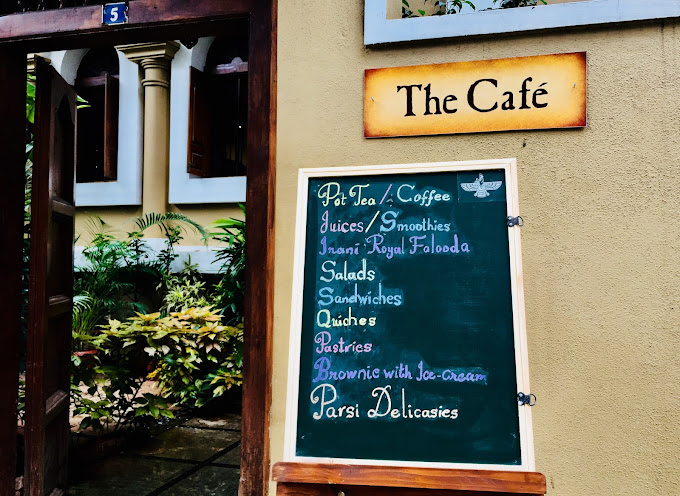 5
The Café
Pot Tea / Coffee
Juices / Smoothies
Irani Royal Falooda
Salads
Sandwiches
Quiches
Pastries
Brownie with Ice-cream
Parsi Delicasies